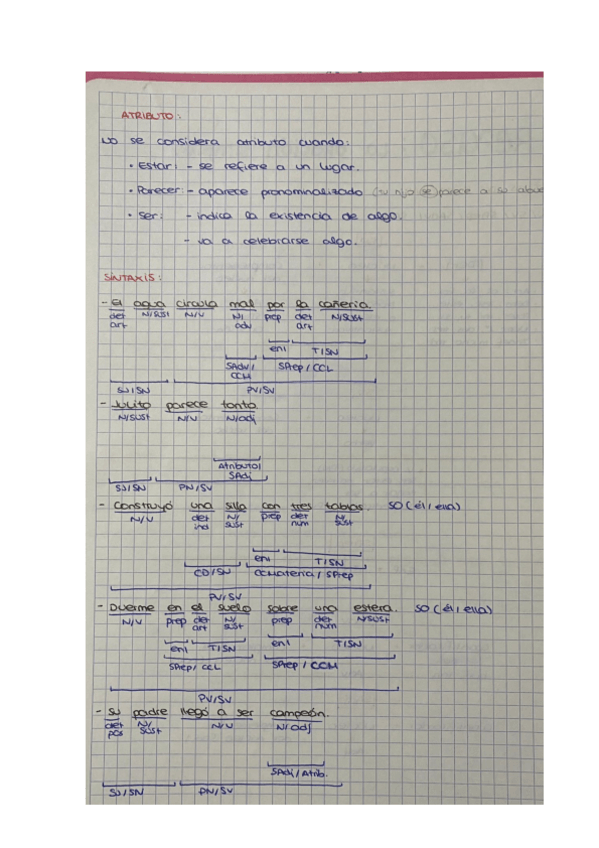 ATRIBUTO:
No se considera atributo cuando:
• Estar: - se refiere a un lugar.
• Parecer: - aparece pronominalizado (su hijo se parece a su abue
• Ser: - indica la existencia de algo.
- va a celebrarse algo.
SINTAXIS:
- El agua circula mal por la cañería.
det art N/sust N/V N/ adv prep det art N/sust
enl T/SN
SAdv/ CCM SPrep/CCL
SJ/SN PV/SV
- Julito parece tonto
N/sust N/V N/adj
Atributo/ SAdj
SJ/SN PN/SV
- Construyó una silla con tres tablas. SO (él/ella)
N/V det ind N/ sust prep det num N/ sust
enl T/SN
CD/SN CCMateria/SPrep
PV/SV
- Duerme en el suelo sobre una estera. SO (él/ella)
N/V prep det art N/ sust prep det num N/sust
enl T/SN enl T/SN
SPrep/CCL SPrep/CCM
PV/SV
- Su padre llegó a ser campeón.
det pos N/ sust N/V N/adj
SAdj/Atrib.
SJ/SN PN/SV